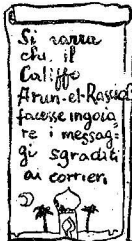 Si narra
che il
Califfo
Arun-el-Rascid
facesse ingoia
re i messag=
gi sgraditi
ai corrieri